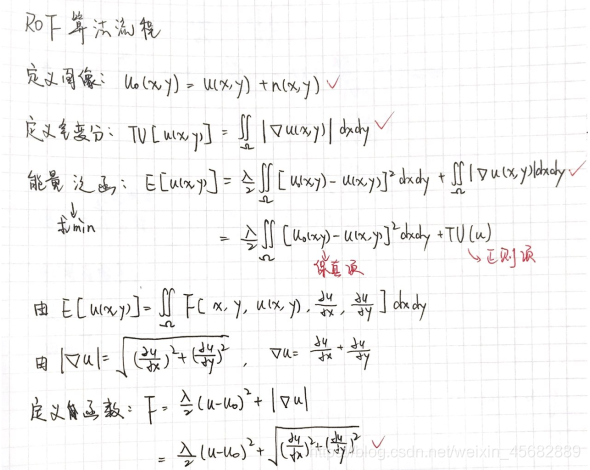 ROF算法流程
定义图像: u₀(x,y) = u(x,y) + n(x,y) ✓
定义全变分: TV[u(x,y)] = ∬_Ω |∇u(x,y)| dxdy ✓
能量泛函: E[u(x,y)] = λ/2 ∬_Ω [u₀(x,y) - u(x,y)]² dxdy + ∬_Ω |∇u(x,y)| dxdy ✓
↓
求min
= λ/2 ∬_Ω [u₀(x,y) - u(x,y)]² dxdy + TV(u)
保真项 ↘正则项
由 E[u(x,y)] = ∬_Ω F[x, y, u(x,y), ∂u/∂x, ∂u/∂y] dxdy
由 |∇u| = √((∂u/∂x)² + (∂u/∂y)²) , ∇u = ∂u/∂x + ∂u/∂y
定义函数: F = λ/2 (u-u₀)² + |∇u|
= λ/2 (u-u₀)² + √((∂u/∂x)² + (∂u/∂y)²) ✓
https://blog.csdn.net/weixin_45682889